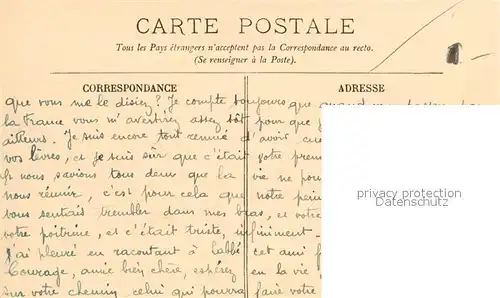 CARTE POSTALE
Tous les Pays étrangers n'acceptent pas la Correspondance au recto.
(Se renseigner à la Poste).
CORRESPONDANCE
ADRESSE
que vous me le disiez? Je compte toujours que quand
la France vous m'avertirez assez tôt pour que
ailleurs. Je suis encore tout remué d'avoir
vos lèvres, et je suis sûr que c'était votre
nous savions tous deux que la vie ne
nous réunir, c'est pour cela que notre
vous sentais trembler dans mes bras, et votre
votre poitrine, et c'était triste, infiniment.
J'ai pleuré en racontant à l'abbé cet ami
Courage, amie bien chère, espérez en la vie
sur votre chemin celui qui pourra faire votre
privacy protection
Datenschutz